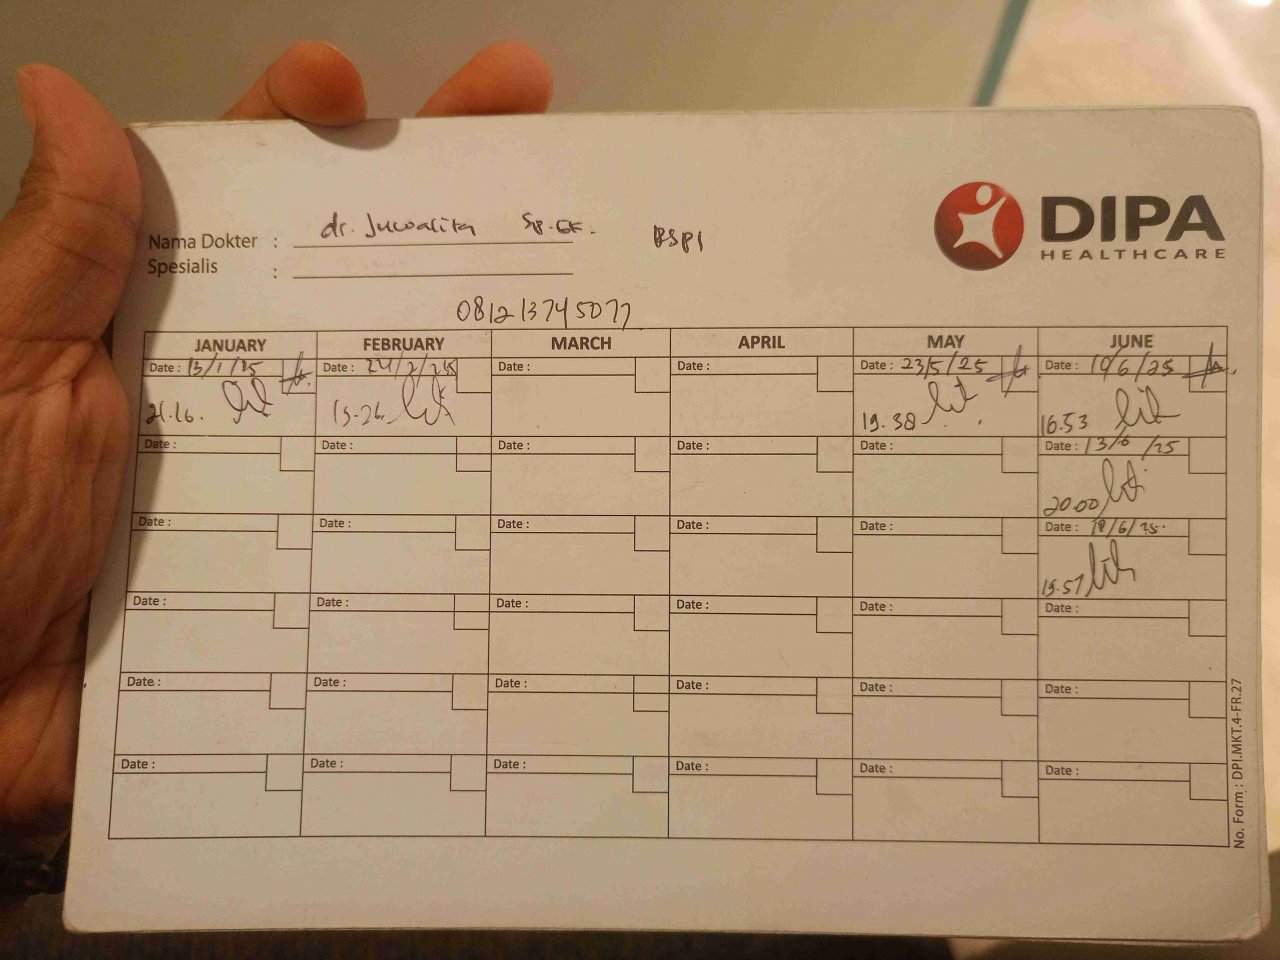 DIPA
HEALTHCARE
Nama Dokter : dr. Juwalita Sp.GK. BSPI
Spesialis :
081213745077
JANUARY FEBRUARY MARCH APRIL MAY JUNE
Date : 13/1/25 Date : 24/2/25 Date : Date : Date : 23/5/25 Date : 10/6/25
21.16. 19.38 16.53
Date : Date : Date : Date : Date : Date : 13/6/25
20.00
Date : Date : Date : Date : Date : Date : 18/6/25.
19.57
Date : Date : Date : Date : Date : Date :
Date : Date : Date : Date : Date : Date :
Date : Date : Date : Date : Date : Date :
No. Form : DPI.MKT.4-FR.27